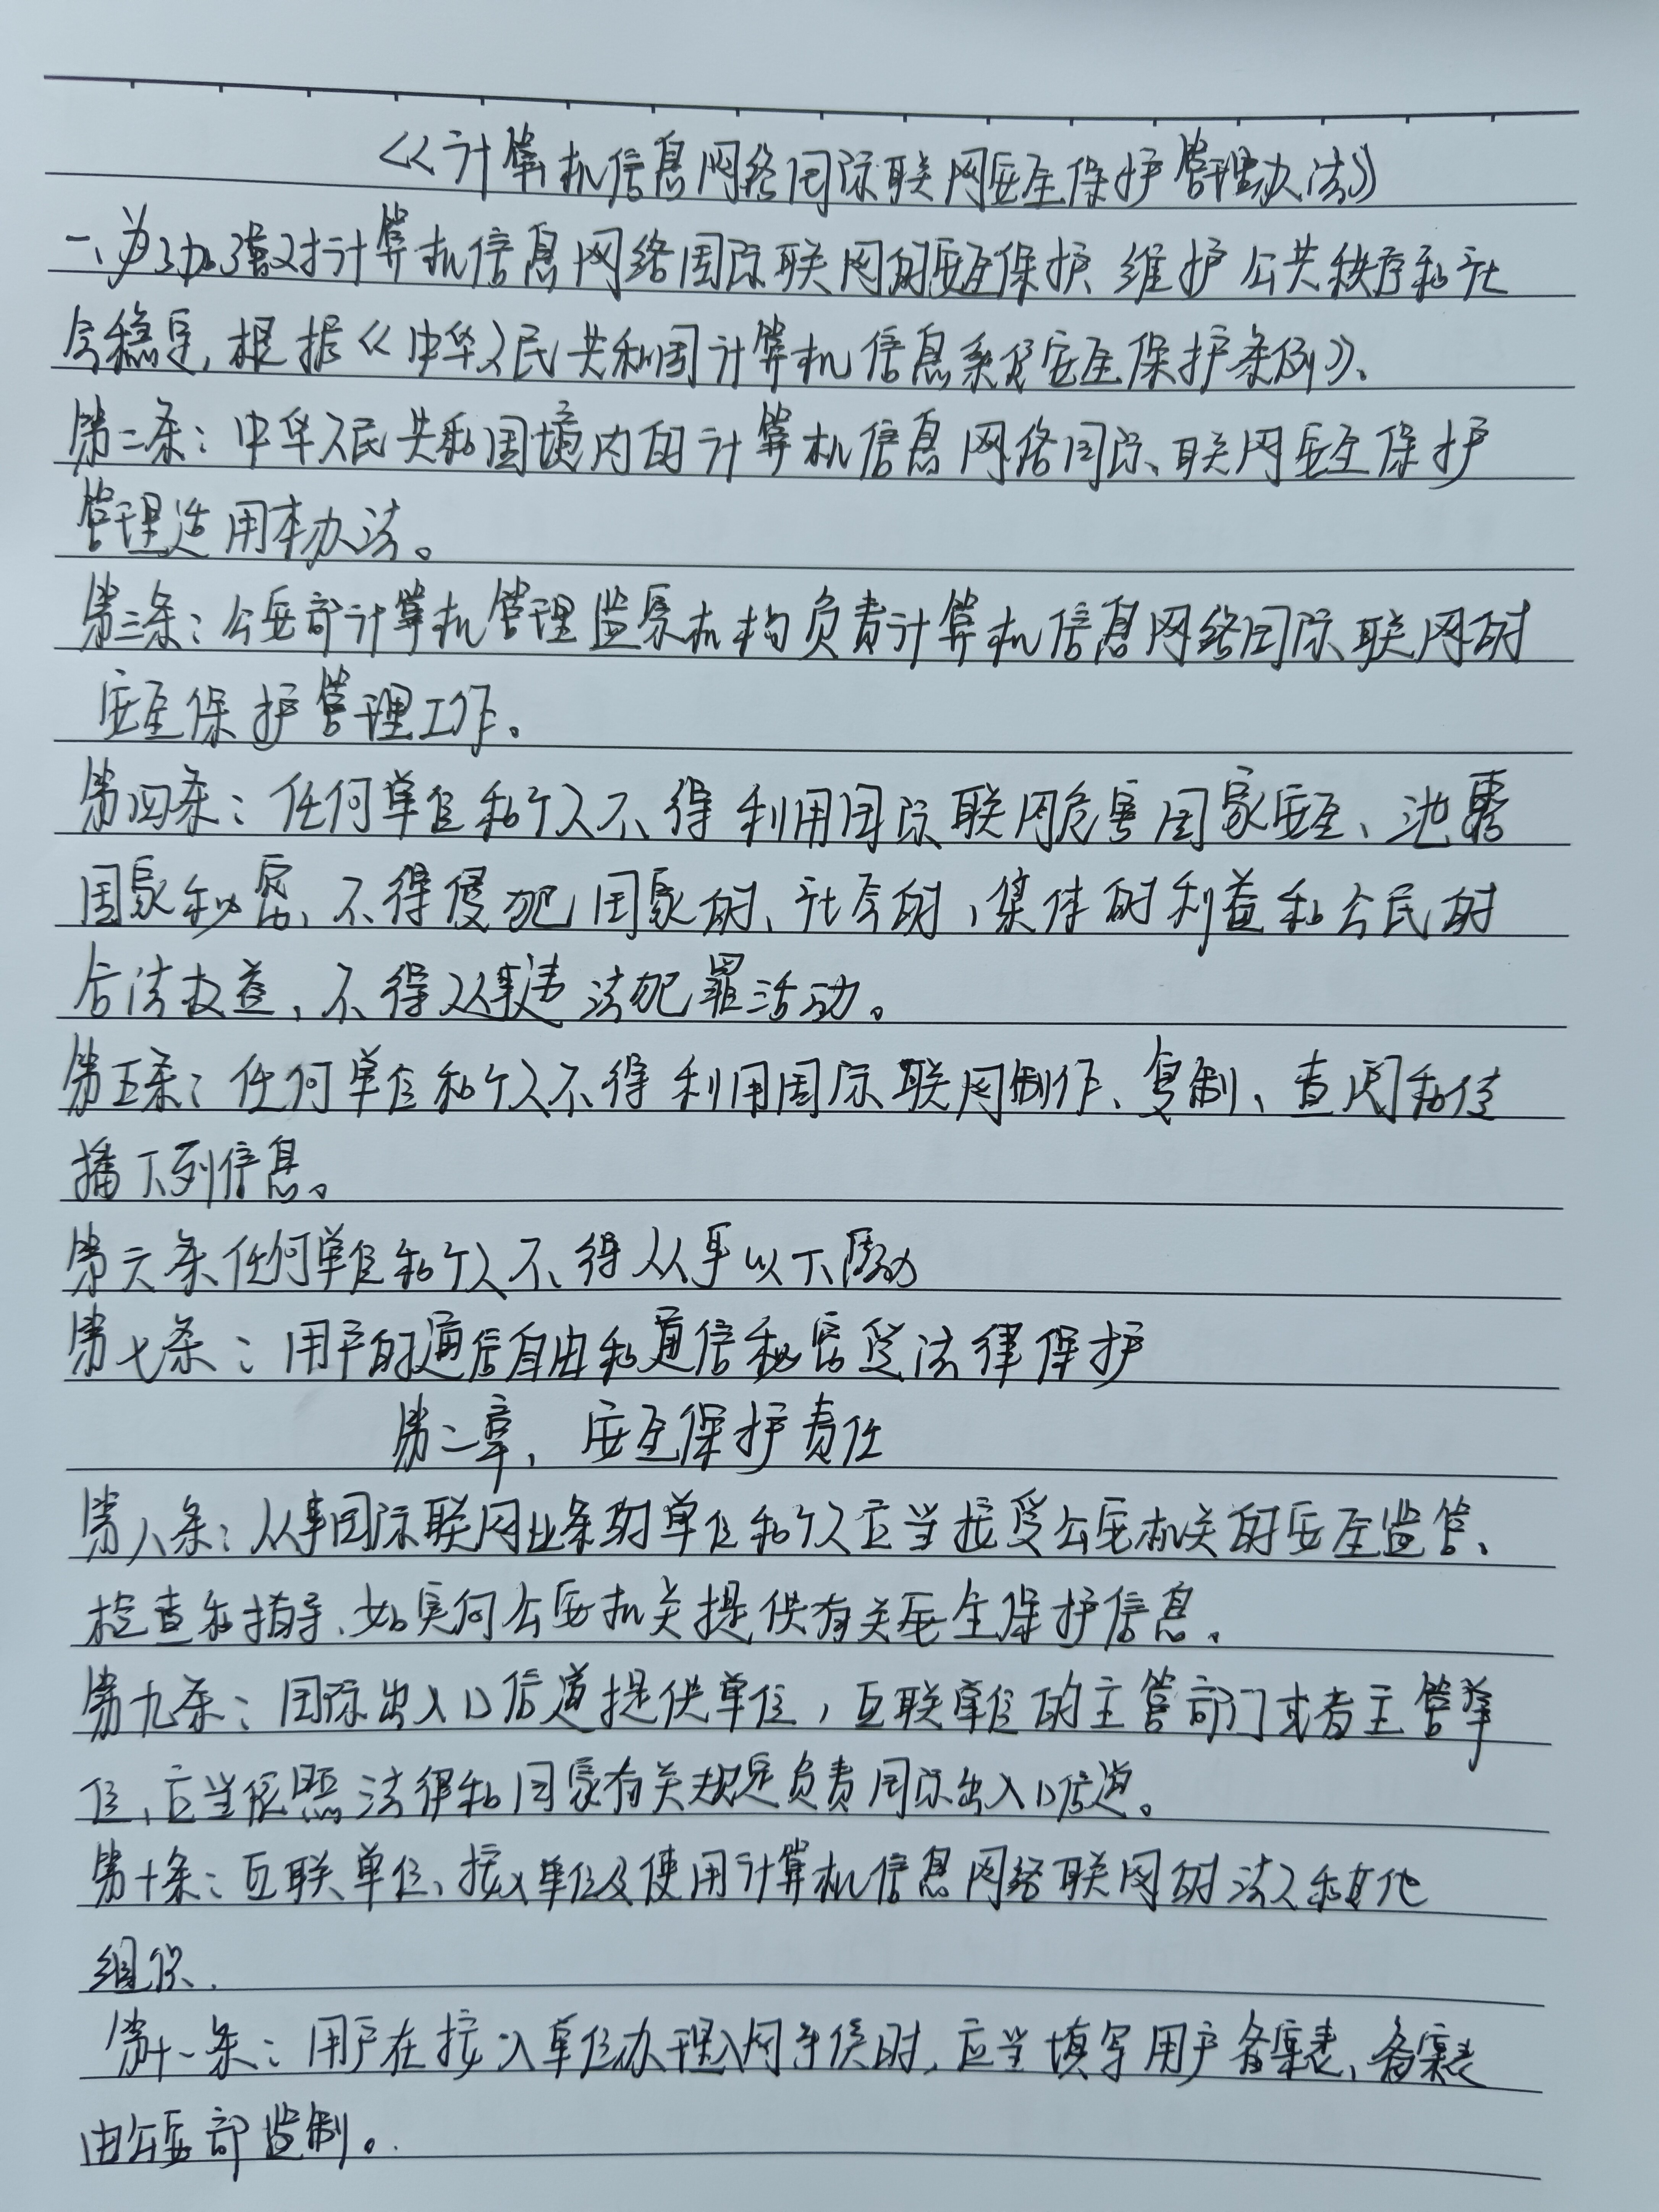 《计算机信息网络国际联网安全保护管理办法》
一、为了加强对计算机信息网络国际联网的安全保护、维护公共秩序和社
会稳定,根据《中华人民共和国计算机信息系统安全保护条例》、
第二条:中华人民共和国境内的计算机信息网络国际、联网安全保护
管理适用本办法。
第三条:公安部计算机管理监察机构负责计算机信息网络国际联网的
安全保护管理工作。
第四条:任何单位和个人不得利用国际联网危害国家安全、泄露
国家秘密、不得侵犯国家的、社会的,集体的利益和公民的
合法权益,不得从事违法犯罪活动。
第五条:任何单位和个人不得利用国际联网制作、复制、查阅和传
播下列信息。
第六条任何单位和个人不得从事以下活动
第七条:用户的通信自由和通信秘密受法律保护
第二章、安全保护责任
第八条:从事国际联网业务的单位和个人应当接受公安机关的安全监管、
检查和指导、如实向公安机关提供有关安全保护信息。
第九条:国际出入口信道提供单位,互联单位的主管部门或者主管单
位,应当依照法律和国家有关规定负责国际出入口信道。
第十条:互联单位、接入单位及使用计算机信息网络联网的法人和其他
组织.
第十一条:用户在接入单位办理入网手续时,应当填写用户备案表、备案表
由公安部监制。